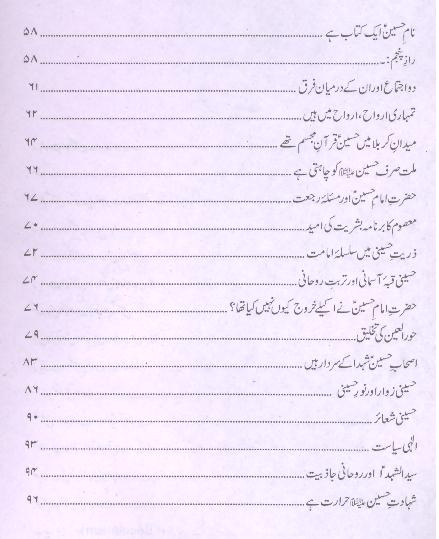 نام حسینؑ ایک کتاب ہے ۵۸
راز پنجم:۔ ۵۸
دو اجتماع اور ان کے درمیان فرق ۶۱
تمہاری ارواح، ارواح میں ہیں ۶۲
میدانِ کربلا میں حسینؑ قرآنِ مجسم تھے ۶۴
ملت صرف حسین علیہ السلام کو چاہتی ہے ۶۶
حضرت امام حسینؑ اور مسئلہ رجعت ۶۷
معصوم کا برنامہ بشریت کی امید ۷۰
ذریتِ حسینی میں سلسلۂ امامت ۷۲
حسینی قبۂ آسمانی اور تربتِ روحانی ۷۴
حضرت امام حسینؑ نے اکیلے خروج کیوں نہیں کیا تھا؟ ۷۶
حور العین کی تخلیق ۷۹
اصحابِ حسینؑ شہدا کے سردار ہیں ۸۳
حسینی زوار اور نورِ حسینی ۸۶
حسینی شعائر ۹۰
الٰہی سیاست ۹۳
سید الشہداؑ اور روحانی جاذبیت ۹۴
شہادتِ حسین علیہ السلام حرارت ہے ۹۶